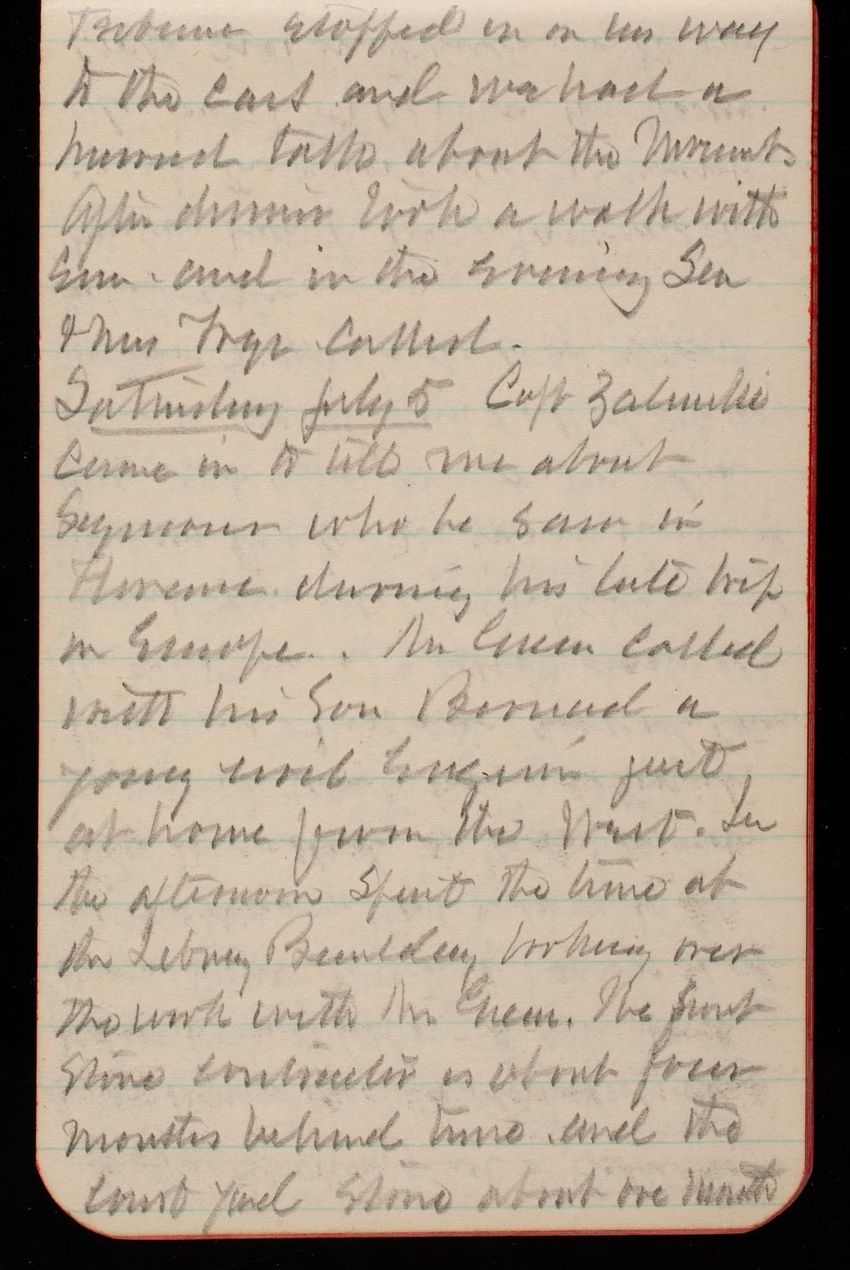 Tribune stopped in on his way
to the east and we had a
hurried talk about the Monument.
After dinner took a walk with
Em. and in the evening Gen
& Mrs Frye called.
Saturday July 5 Capt Zalinski
came in to tell me about
Seymour who he saw in
Florence during his late trip
in Europe. Mr Green called
with his son Bernard a
young civil Engineer just
at home from the West. In
the afternoon spent the time at
the Library Building looking over
the work with Mr Green. The front
stone contractor is about four
months behind time and the
court yard stone about one month